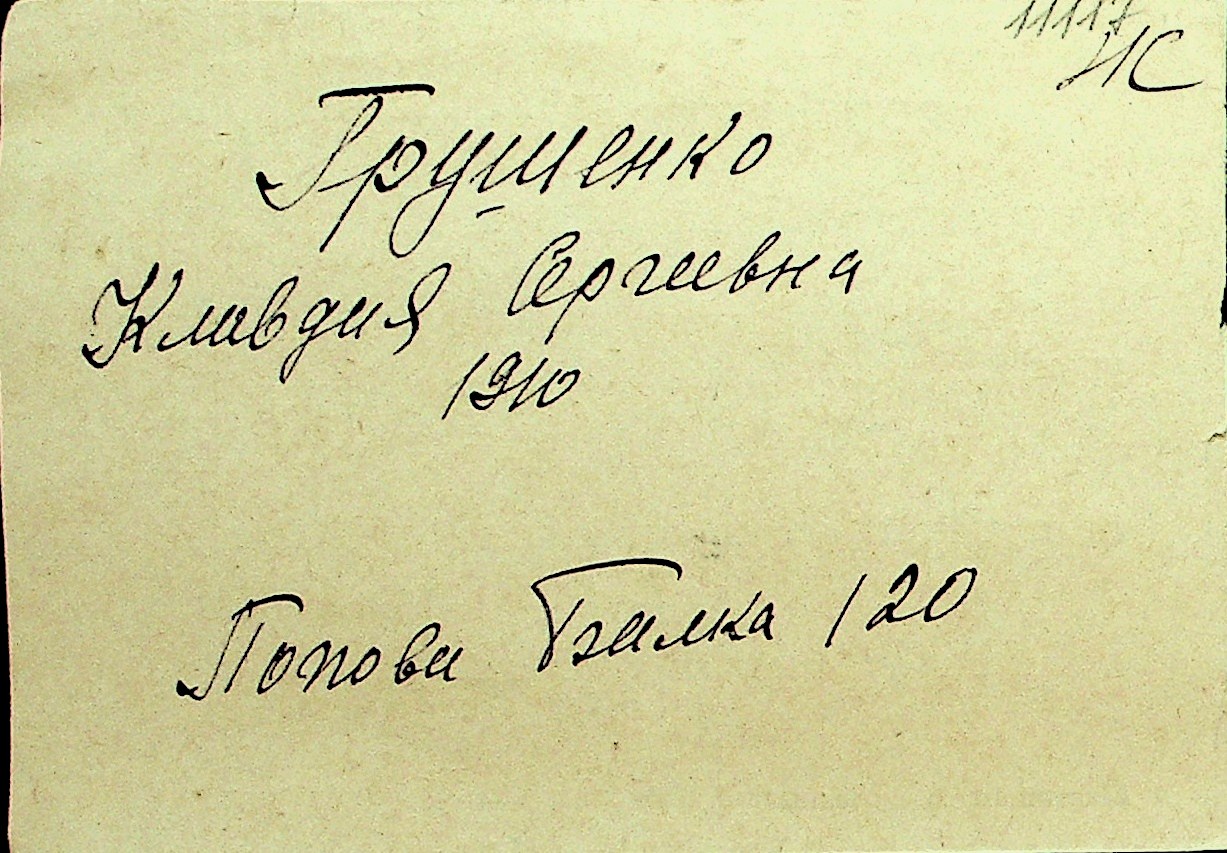 11117
НС
Грушенко
Клавдия Сергеевна
1910
Попова Балка 120